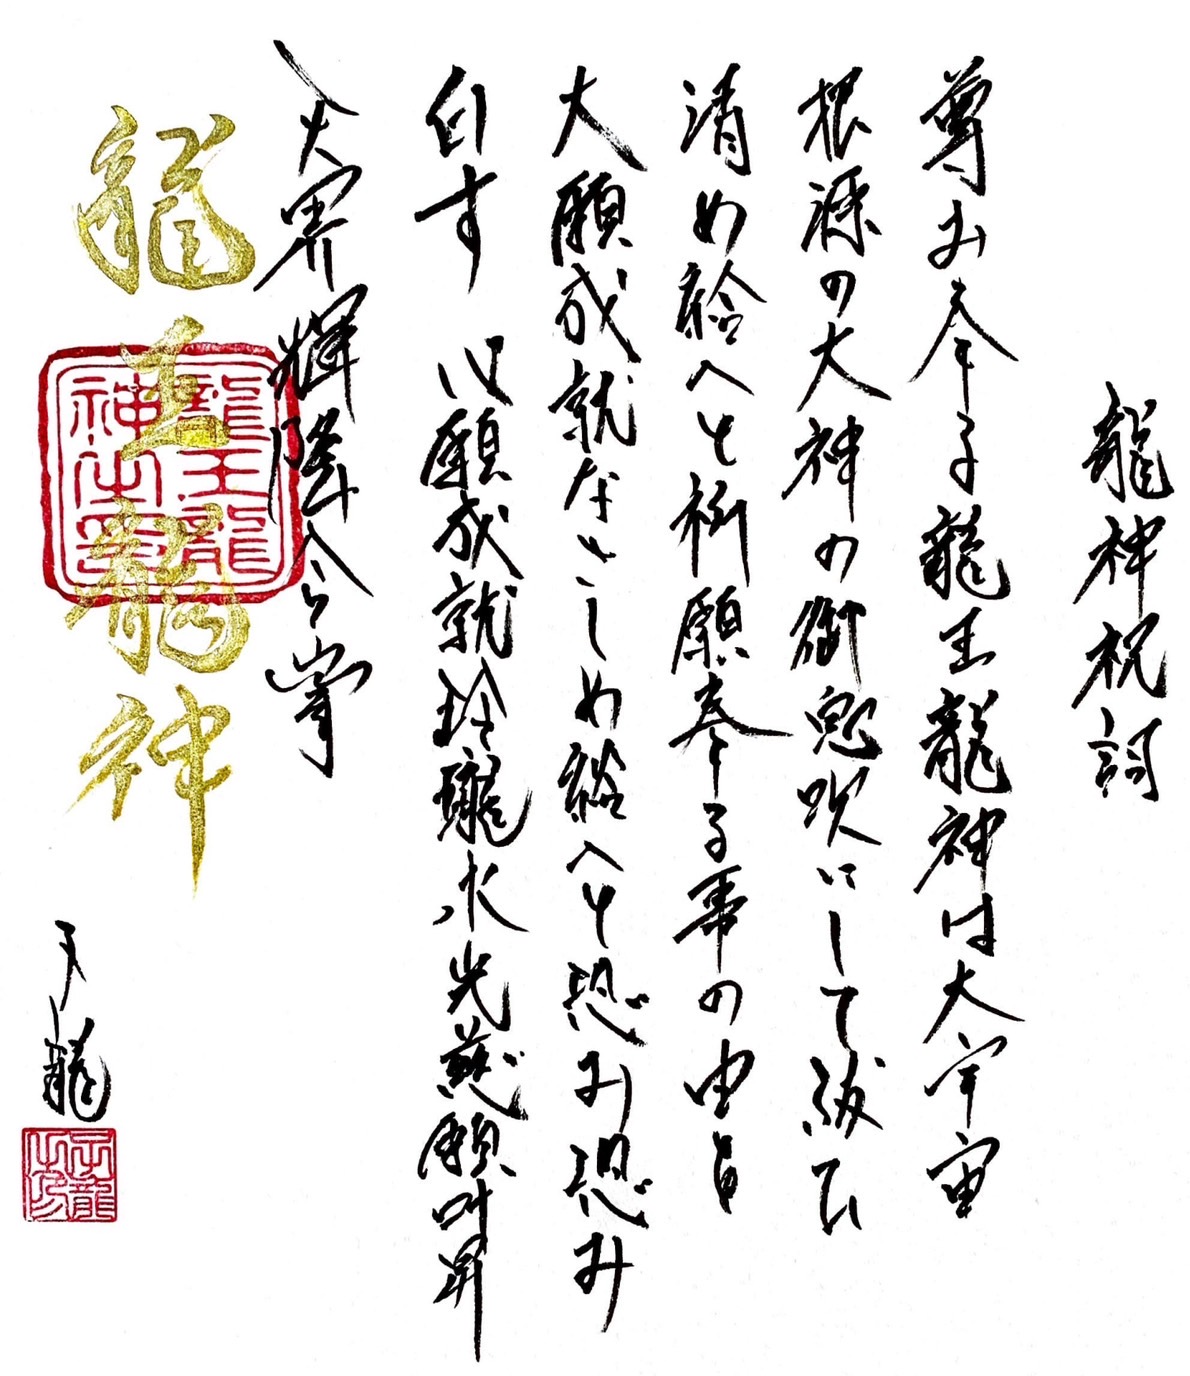 龍神祝詞
尊み奉る龍王龍神は大宇宙
根源の大神の御鬼吹にして祓ひ
清め給へと祈願奉る事の由を
大願成就なさしめ給へと恐み恐み
白す 心願成就玲瓏水光慈願叶昇
天界輝降令
龍王龍神
龍王龍神之
龍
子龍之